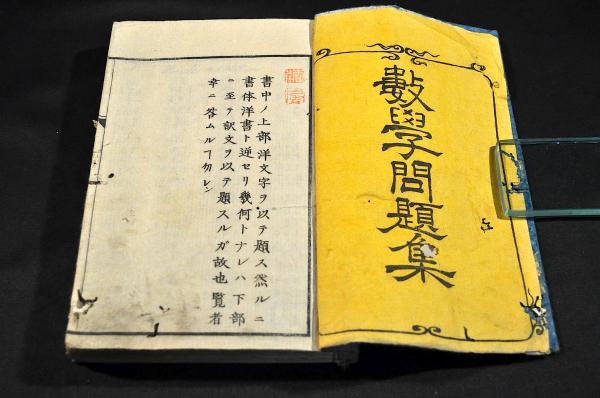 數學問題集
書中ノ上部洋文字ヲ以テ題ス然ルニ
書体洋書ト逆セリ幾何トナレハ下部
ニ至テ訳文ヲ以テ題スルガ故也覧者
幸ニ咎ムルヿ勿レ